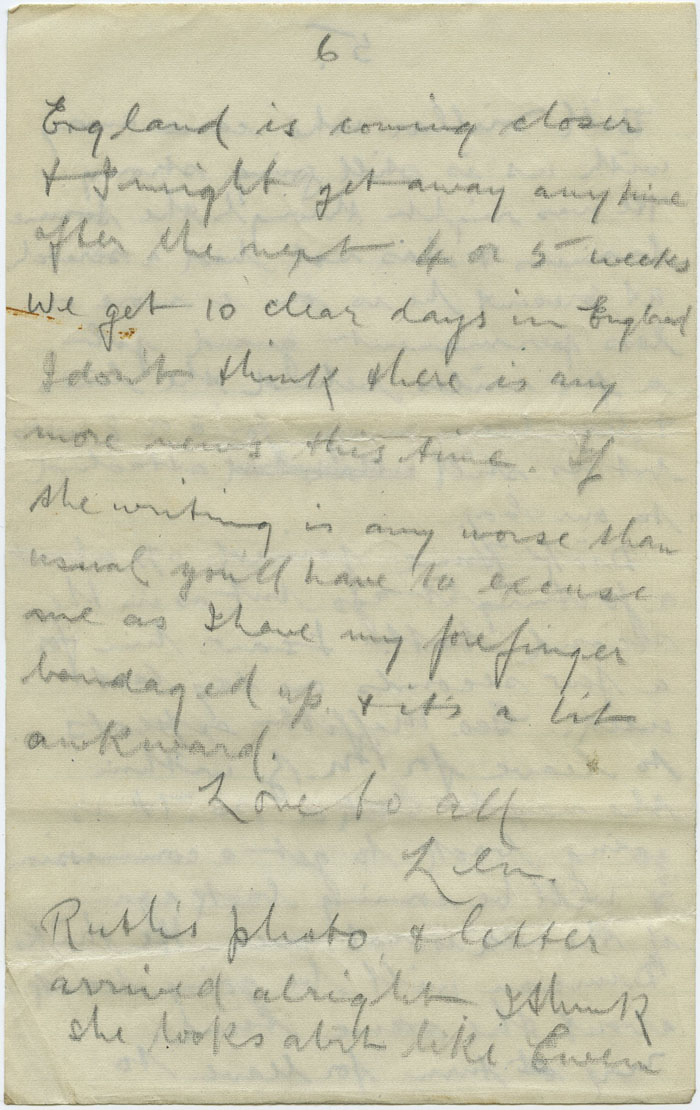 6
England is coming closer
& I might get away anytime
after the next 4 or 5 weeks
We get 10 clear days in England
I don't think there is any
more news this time. If
the writing is any worse than
usual you'll have to excuse
me as I have my forefinger
bandaged up & it's a bit
awkward.
Love to all
Len.
Ruth's photo & letter
arrived alright. I think
she looks a bit like Ewen